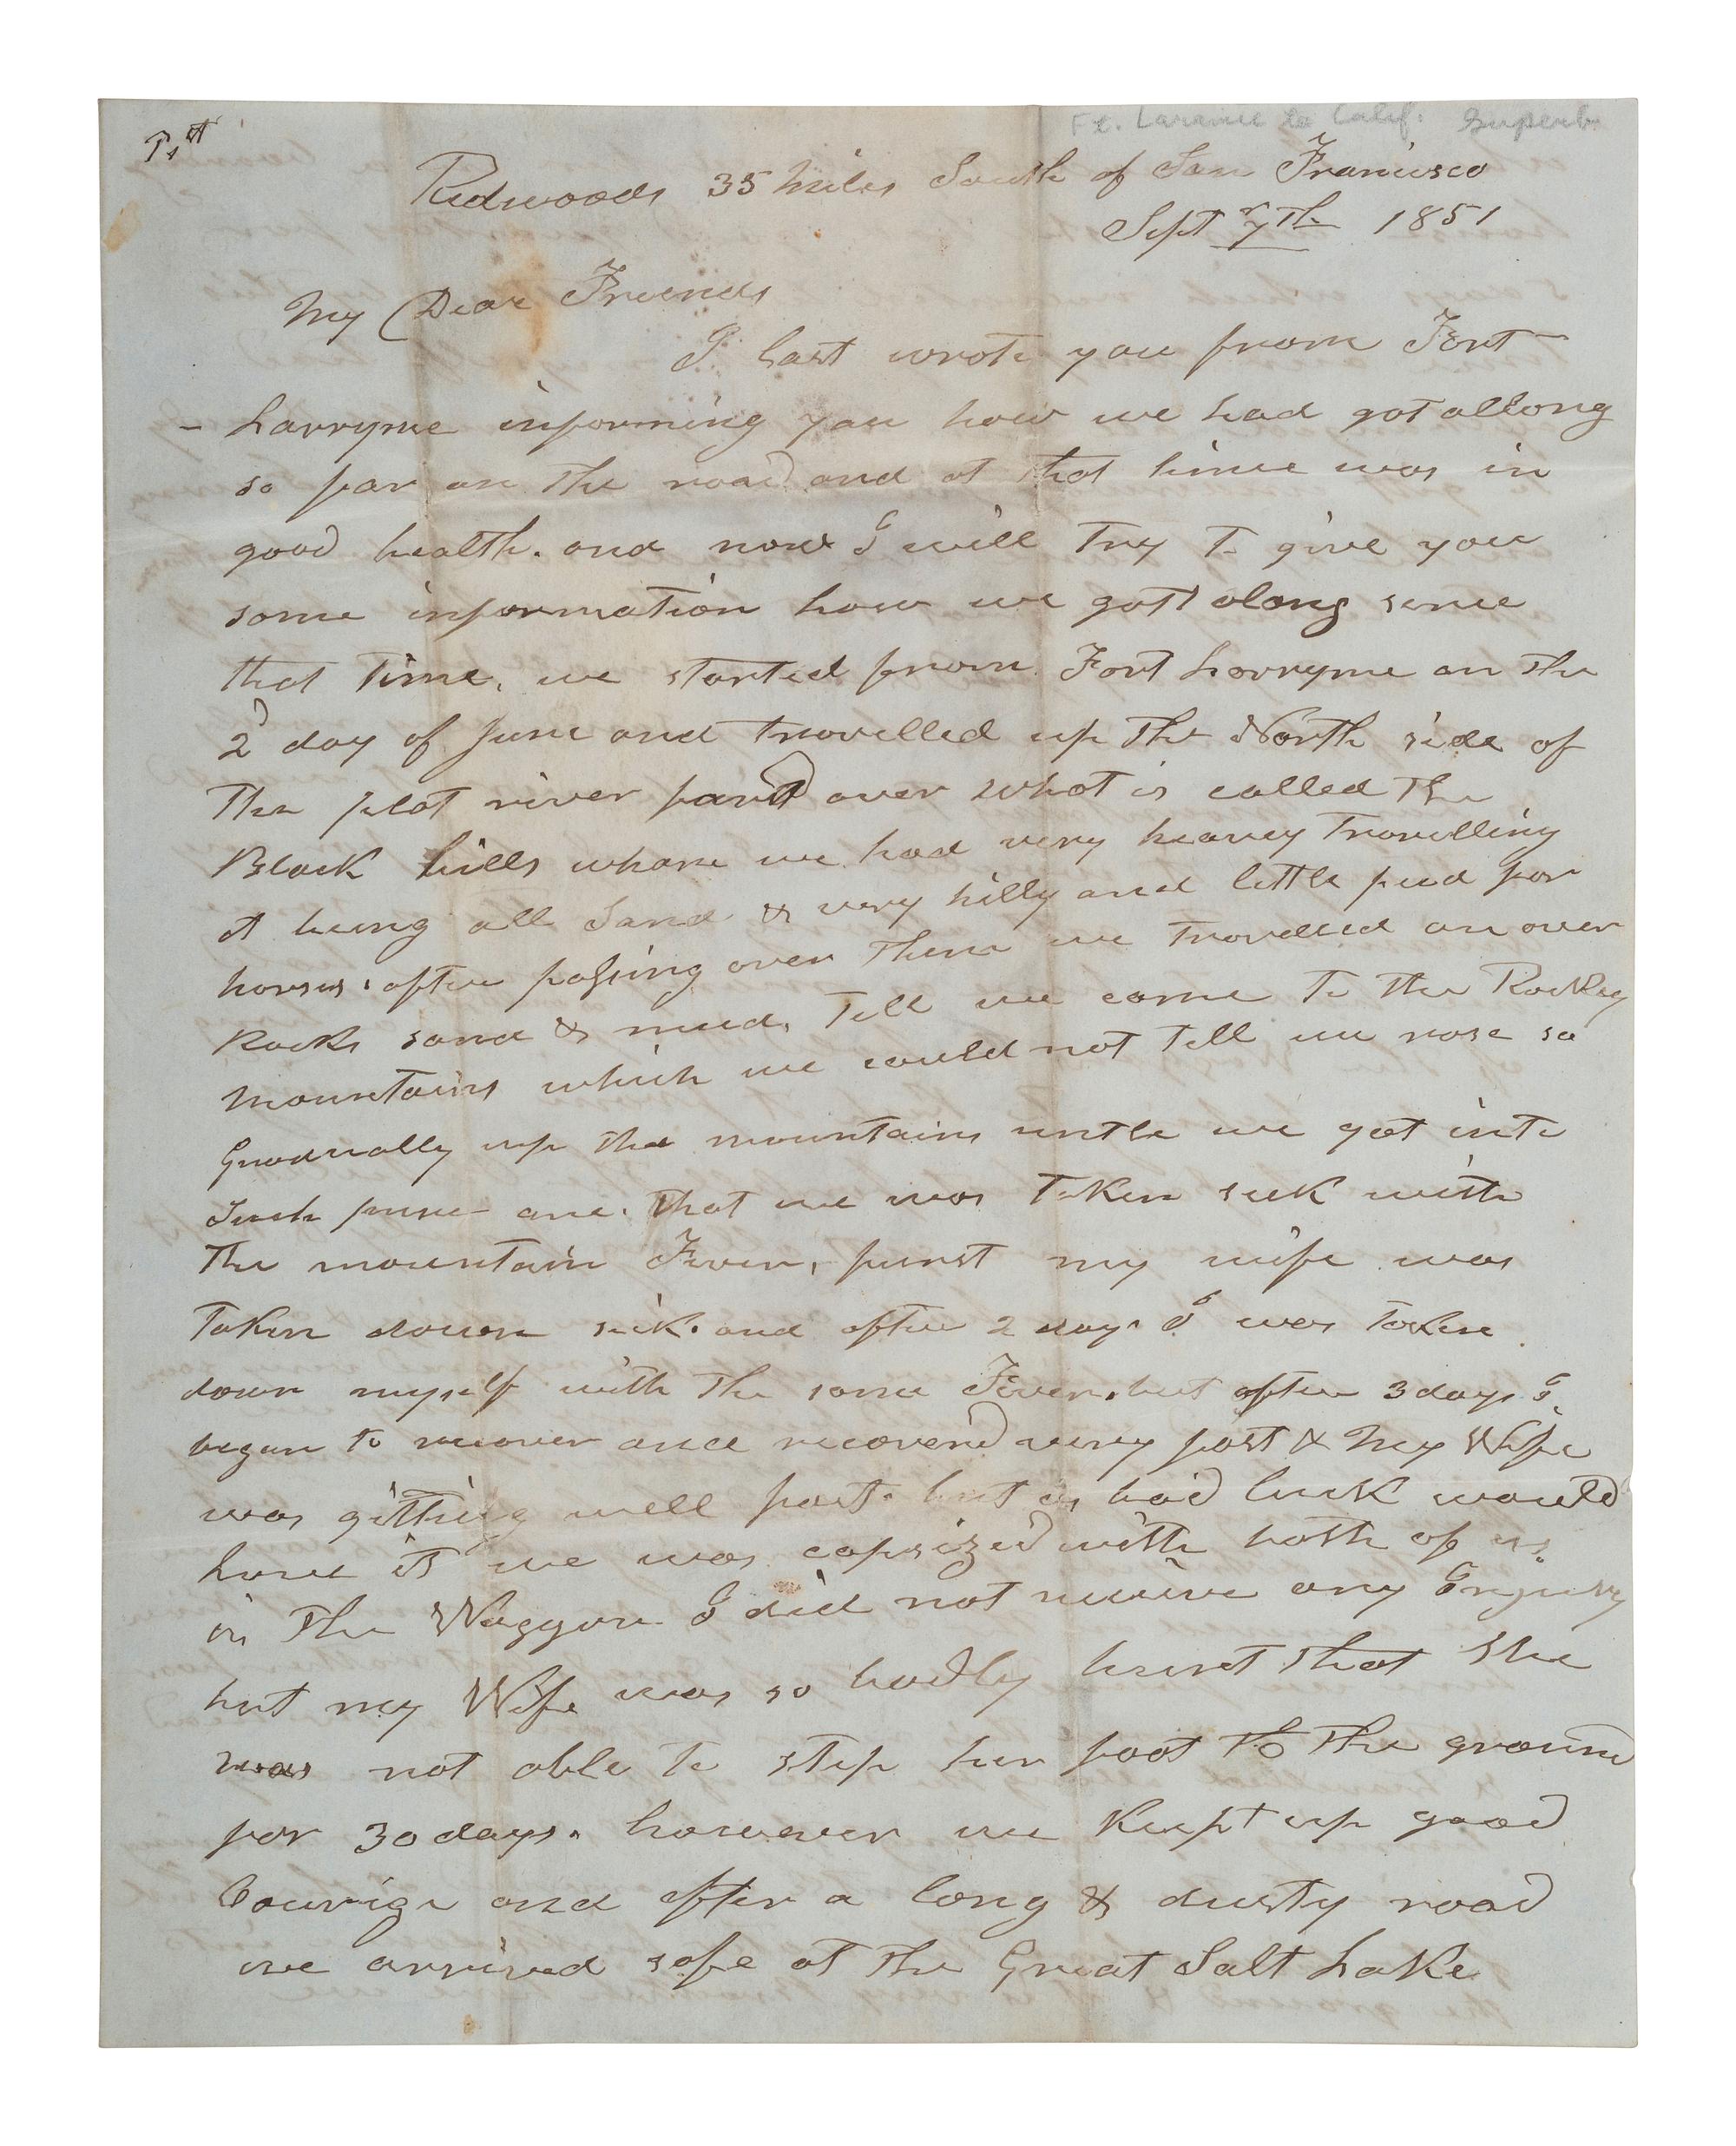 P. 1st
Ft. Laramie to Calif. Superb.
Redwoods 35 Miles South of San Francisco
Sept 7th 1851
My Dear Friends
I last wrote you from Fort
- Larryme informing you how we had got allong
so far on the road and at that time was in
good health. and now I will try to give you
some information how we gott along sence
that time. we started from Fort Larryme on the
2d day of June and travelled up the North side of
the plat river parst over what is called the
Black hills whare we had very heavey travelling
it being all sand & very hilly and little feed for
horses. after passing over them we travelled on over
Rocks sand & mud. till we come to the Rockey
mountains which we could not tell we rose so
Gradually up the mountains untle we got into
such pure are. that we was taken sick with
the mountain Fever, furst my wife was
taken down sick. and after 2 days I was taken
down myself with the same Fever. but after 3 days I
began to recover and recovered very fast & My Wife
was gitting well fast. but as bad luck would
have it we was capsized with both of us
in the Waggon I did not receive any Injury
but my Wife was so badly hurst that she
was not able to step her foot to the ground
for 30 days. however we keept up good
Courige and after a long & dusty road
we arrived safe at the Great Salt Lake